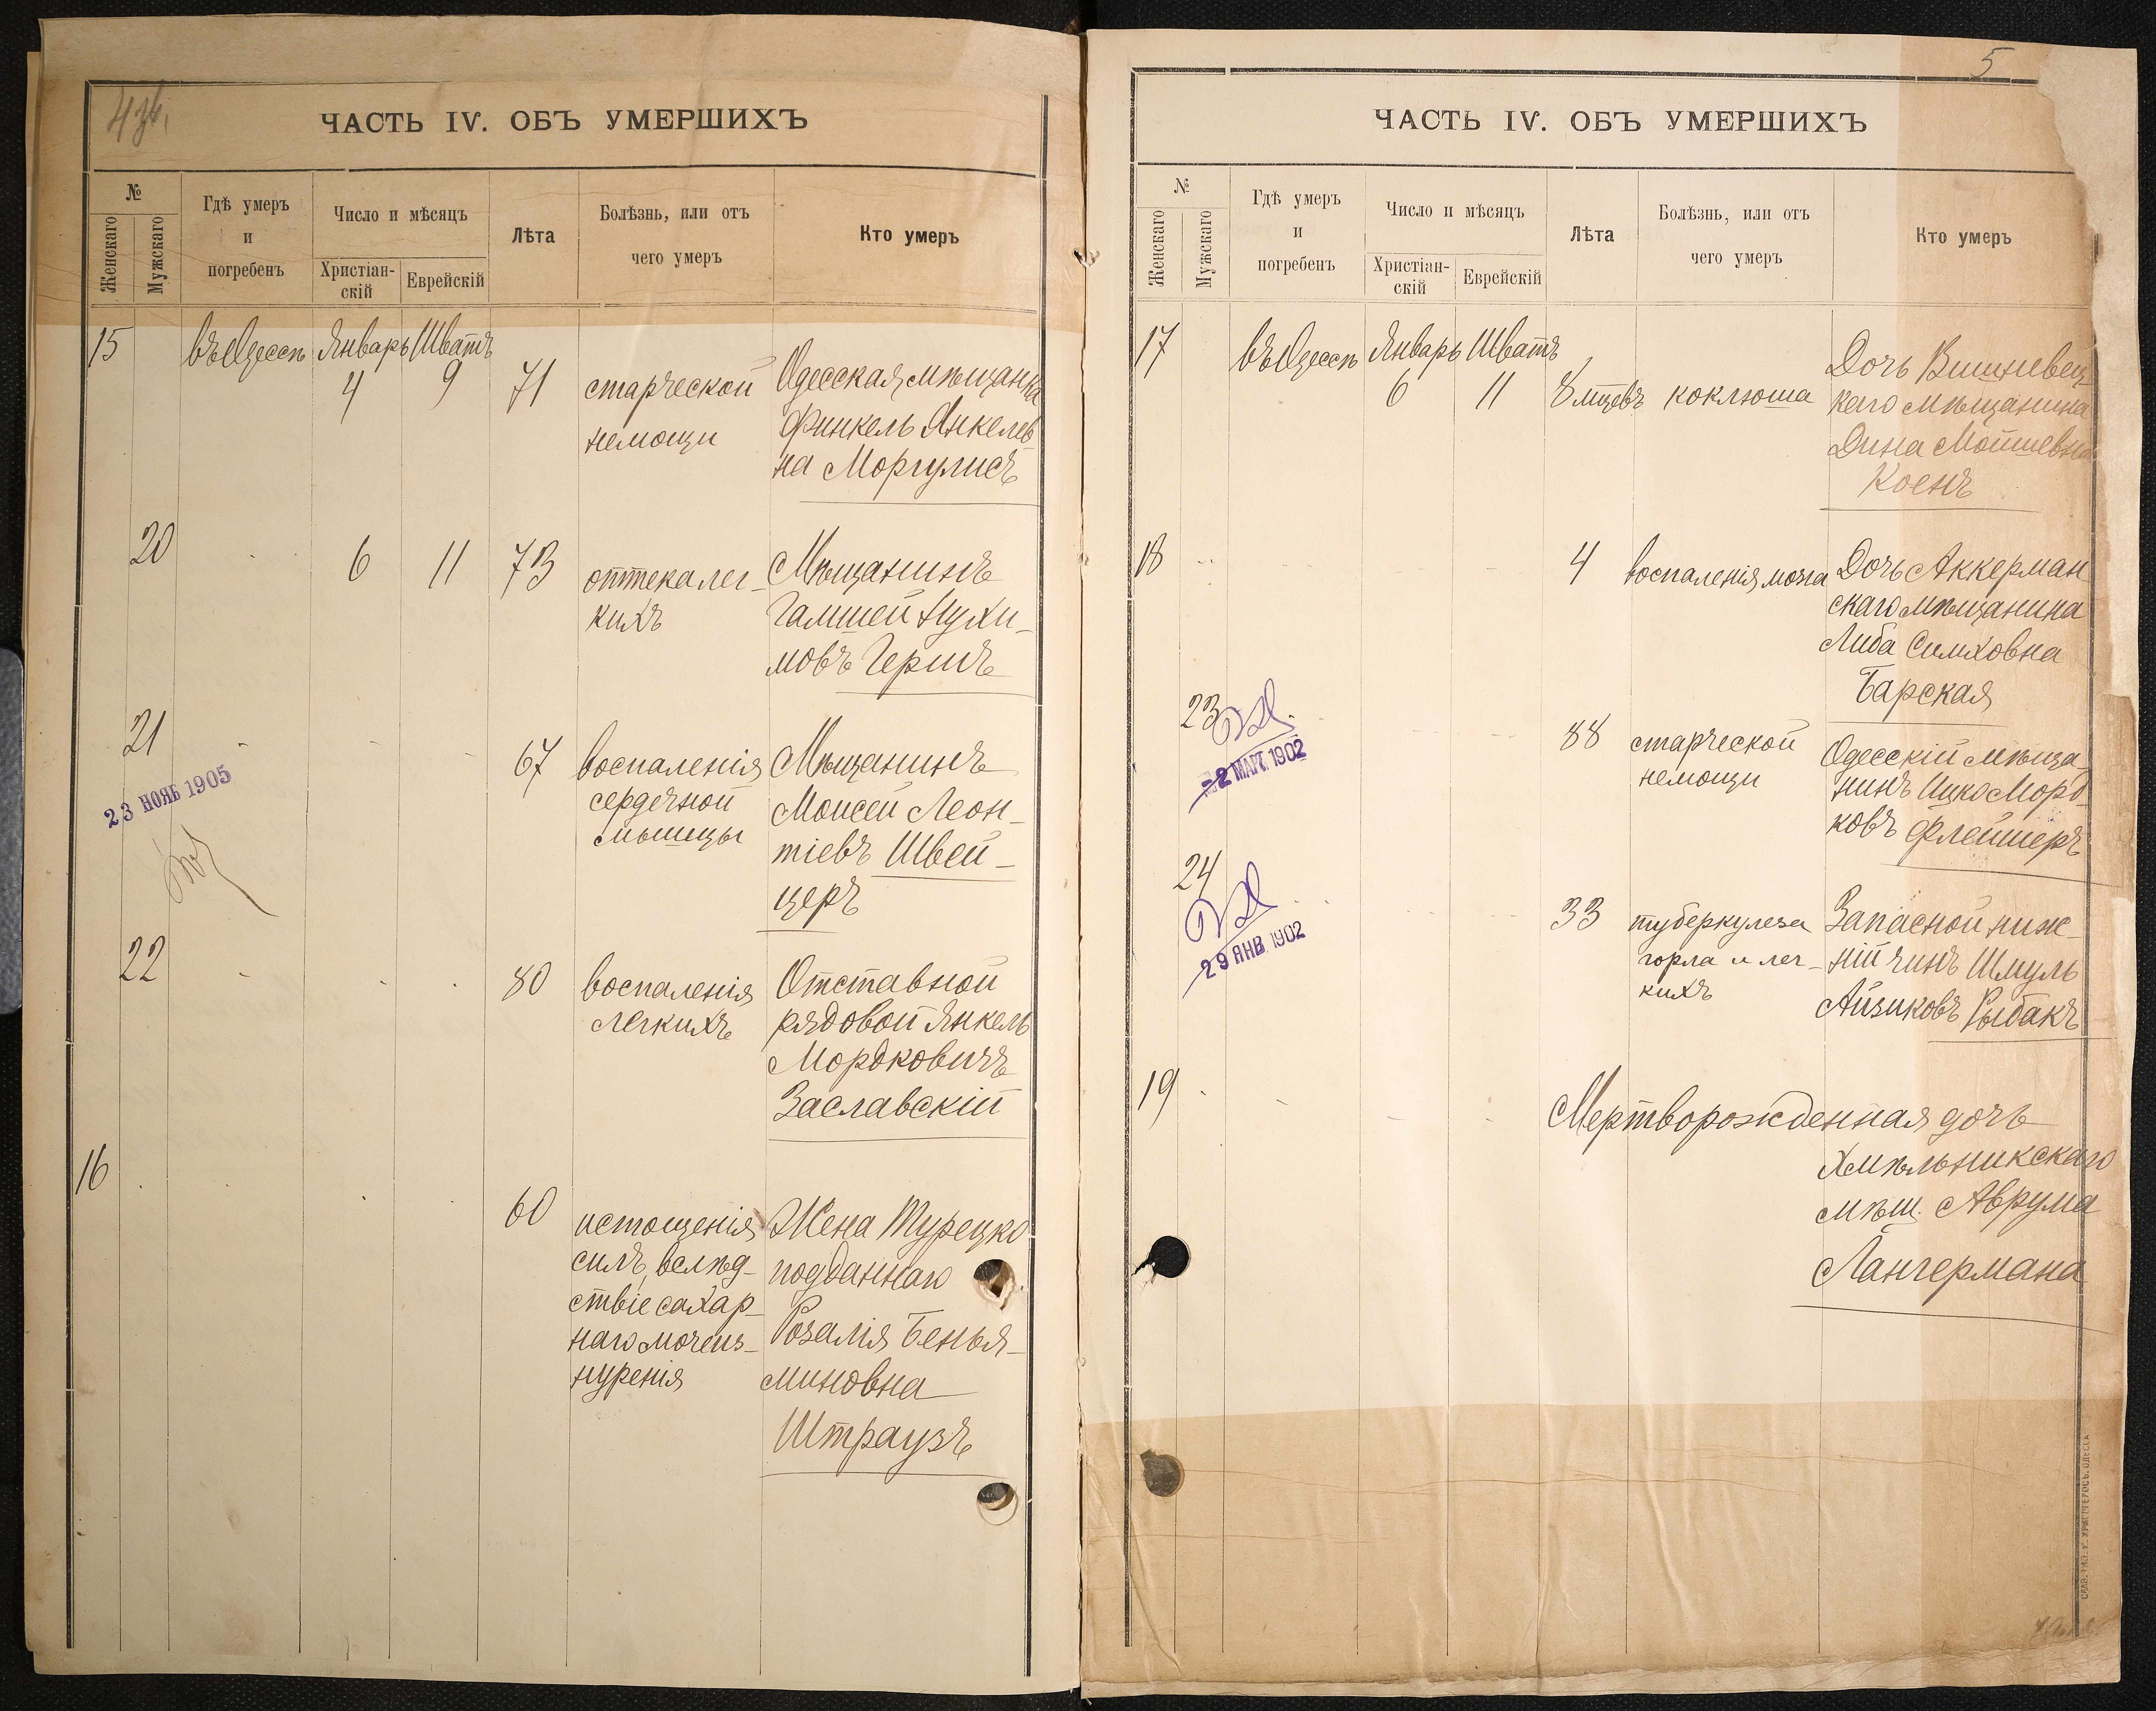 4 зв.
ЧАСТЬ IV. ОБЪ УМЕРШИХЪ
№
Женскаго
Мужскаго
Гдѣ умеръ
и
погребенъ
Число и мѣсяцъ
Христіан-
скій
Еврейскій
Лѣта
Болѣзнь, или отъ
чего умеръ
Кто умеръ
15
въ Одессѣ
Январь
4
Шватъ
9
71
старческой
немощи
Одесская мѣщанка
Финкель Янкелев
на Моргулисъ
20
6
11
73
оттека лег-
кихъ
Мѣщанинъ
Гамшей Нухи-
мовъ Гершъ
21
23 НОЯБ 1905
67
воспаленія
сердечной
мышцы
Мѣщанинъ
Моисей Леон-
тіевъ Швей-
церъ
22
80
воспаленія
легкихъ
Отставной
рядовой Янкель
Мордковичъ
Заславскій
16
60
истощенія
силъ, вслѣд-
ствіе сахар-
наго мочеиз-
нуренія
Жена Турецко
подданнаго
Розалія Бенья-
миновна
Штраузъ
5
ЧАСТЬ IV. ОБЪ УМЕРШИХЪ
№
Женскаго
Мужскаго
Гдѣ умеръ
и
погребенъ
Число и мѣсяцъ
Христіан-
скій
Еврейскій
Лѣта
Болѣзнь, или отъ
чего умеръ
Кто умеръ
17
въ Одессѣ
Январь
6
Шватъ
11
8 мцевъ
коклюша
Дочь Вишневец-
каго мѣщанина
Дина Мойшевна
Коенъ
18
4
воспаленія мозга
Дочь Аккерман
скаго мѣщанина
Либа Симховна
Барская
23
-2 МАР. 1902
88
старческой
немощи
Одесскій мѣща-
нинъ Ицко Морд-
ковъ Флейшеръ
24
29 ЯНВ. 1902
33
туберкулеза
горла и лег-
кихъ
Запасной ниж-
ній чинъ Шмуль
Айзиковъ Рыбакъ
19
Мертворожденная дочь
Хмѣльникскаго
мѣщ. Аврума
Лангермана